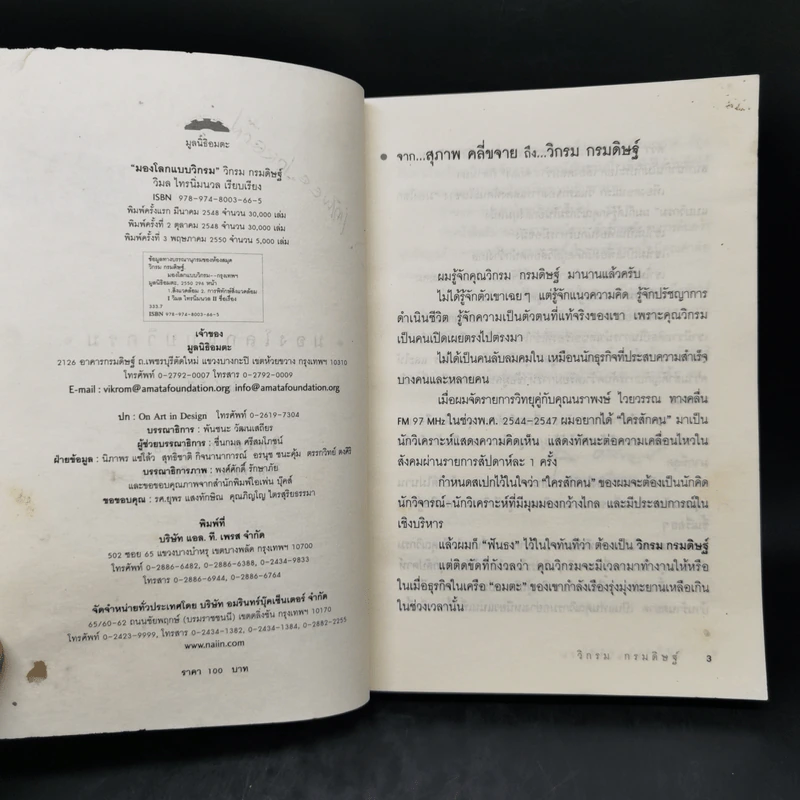 มูลนิธิอมตะ
"มองโลกแบบวิกรม" วิกรม กรมดิษฐ์
วิมล ไทรนิ่มนวล เรียบเรียง
ISBN 978-974-8003-66-5
พิมพ์ครั้งแรก มีนาคม 2548 จำนวน 30,000 เล่ม
พิมพ์ครั้งที่ 2 ตุลาคม 2548 จำนวน 30,000 เล่ม
พิมพ์ครั้งที่ 3 พฤษภาคม 2550 จำนวน 5,000 เล่ม
ข้อมูลทางบรรณานุกรมของหอสมุด
วิกรม กรมดิษฐ์.
มองโลกแบบวิกรม--กรุงเทพฯ
มูลนิธิอมตะ, 2550 296 หน้า
1.สิ่งแวดล้อม 2. การพิทักษ์สิ่งแวดล้อม
I วิมล ไทรนิ่มนวล II ชื่อเรื่อง
333.7
ISBN 978-974-8003-66-5
เจ้าของ
มูลนิธิอมตะ
2126 อาคารกรมดิษฐ์ ถ.เพชรบุรีตัดใหม่ แขวงบางกะปิ เขตห้วยขวาง กรุงเทพฯ 10310
โทรศัพท์ 0-2792-0007 โทรสาร 0-2792-0009
E-mail : vikrom@amatafoundation.org info@amatafoundation.org
ปก : On Art in Design โทรศัพท์ 0-2619-7304
บรรณาธิการ : พันชนะ วัฒนเสถียร
ผู้ช่วยบรรณาธิการ : ชื่นกมล ศรีสมโภชน์
ฝ่ายข้อมูล : นิภาพร แซ่โล้ว สุทธิชาติ กิจนานาการณ์ อรนุช ชนะคุ้ม ดรรกวิทย์ ดงศิริ
บรรณาธิการภาพ : พงศ์ศักดิ์ รักษาภัย
และขอขอบคุณภาพจากสำนักพิมพ์ไอเพ่น บุ๊คส์
ขอขอบคุณ : รศ.ยุพร แสงทักษิณ คุณภิญโญ ไตรสุริยธรรมา
พิมพ์ที่
บริษัท แอล. ที. เพรส จำกัด
502 ซอย 65 แขวงบางบำหรุ เขตบางพลัด กรุงเทพฯ 10700
โทรศัพท์ 0-2886-6482, 0-2886-6388, 0-2434-9833
โทรสาร 0-2886-6944, 0-2886-6764
จัดจำหน่ายทั่วประเทศโดย บริษัท อมรินทร์บุ๊คเซ็นเตอร์ จำกัด
65/60-62 ถนนชัยพฤกษ์ (บรมราชชนนี) เขตตลิ่งชัน กรุงเทพฯ 10170
โทรศัพท์ 0-2423-9999, โทรสาร 0-2434-1382, 0-2434-1384, 0-2882-2255
www.naiin.com
ราคา 100 บาท
• จาก...สุภาพ คลี่ขจาย ถึง...วิกรม กรมดิษฐ์
ผมรู้จักคุณวิกรม กรมดิษฐ์ มานานแล้วครับ
ไม่ได้รู้จักตัวเขาเฉยๆ แต่รู้จักแนวความคิด รู้จักปรัชญาการ
ดำเนินชีวิต รู้จักความเป็นตัวตนที่แท้จริงของเขา เพราะคุณวิกรม
เป็นคนเปิดเผยตรงไปตรงมา
ไม่ได้เป็นคนลับลมคมใน เหมือนนักธุรกิจที่ประสบความสำเร็จ
บางคนและหลายคน
เมื่อผมจัดรายการวิทยุคู่กับคุณนราพงษ์ ไวยวรรณ ทางคลื่น
FM 97 MHz ในช่วงพ.ศ. 2544-2547 ผมอยากได้ "ใครสักคน" มาเป็น
นักวิเคราะห์แสดงความคิดเห็น แสดงทัศนะต่อความเคลื่อนไหวใน
สังคมผ่านรายการสัปดาห์ละ 1 ครั้ง
กำหนดสเปกไว้ในใจว่า "ใครสักคน" ของผมจะต้องเป็นนักคิด
นักวิจารณ์-นักวิเคราะห์ที่มีมุมมองกว้างไกล และมีประสบการณ์ใน
เชิงบริหาร
แล้วผมก็ "ฟันธง" ไว้ในใจทันทีว่า ต้องเป็น วิกรม กรมดิษฐ์
แต่ติดขัดที่กังวลว่า คุณวิกรมจะมีเวลามาทำงานให้หรือ
ในเมื่อธุรกิจในเครือ "อมตะ" ของเขากำลังเรืองรุ่งพุ่งทะยานเหลือเกิน
ในช่วงเวลานั้น
วิกรม กรมดิษฐ์ 3